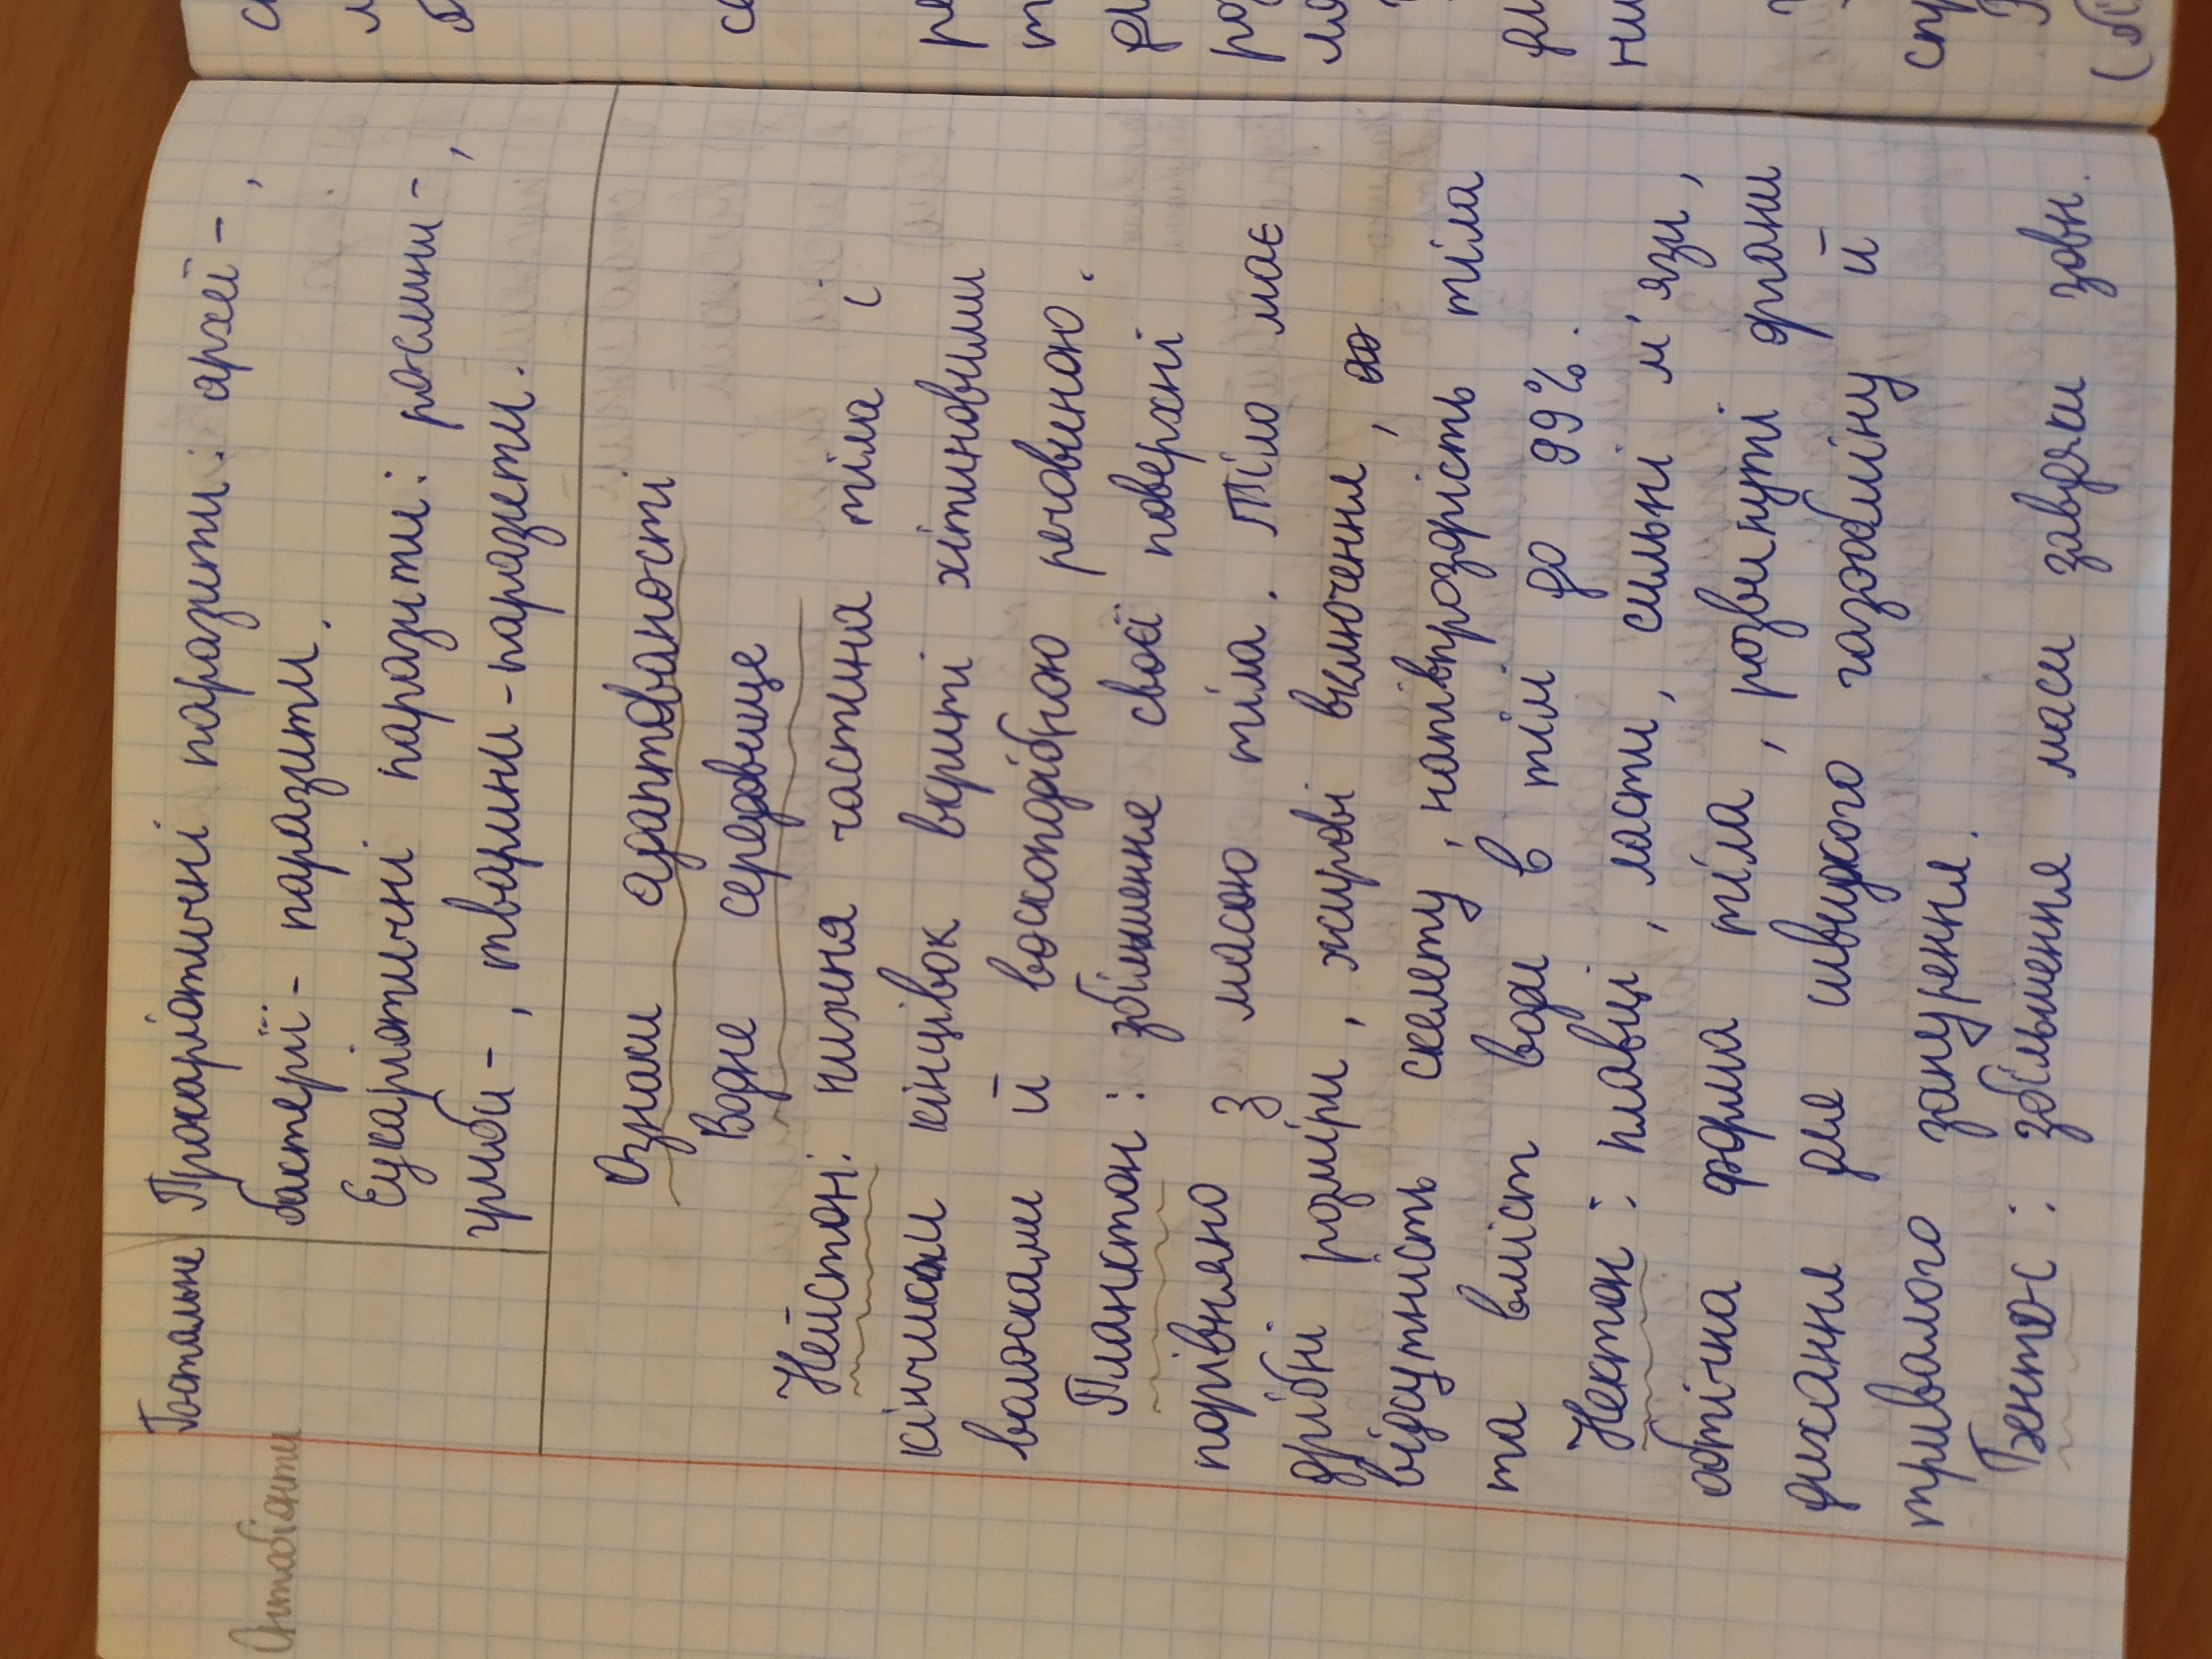 Гостальне Прокаріотичні паразити: археї-,
Онтобіонти
бактерії- паразити.
Еукаріотичні паразити: рослини-,
гриби-, тварини-паразити.
Ознаки адаптованості
Водне середовище
Нейстон: нижня частина тіла і
кінчиками кінцівок вкриті хітиновими
волосками й воскоподібною речовиною.
Планктон: збільшенне своєї поверхні
порівняно з масою тіла. Тіло має
дрібні розміри, жирові включення,
відсутність скелету, напівпроздрість тіла
та вміст води в тілі до 99%.
Нектон: плавці, ласти, сильні м'язи,
обтічна форма тіла, розвинуті органи
дихання для швидкого газообміну й
тривалого занурення.
Бентос: збільшення маси завдяки зовн.